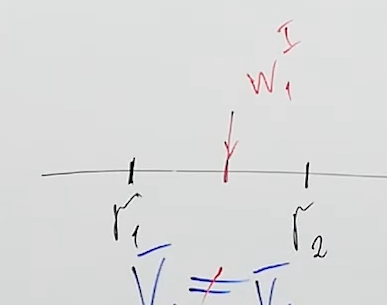 W₁ᴵ
r₁ r₂
V̄ ≠ V̄